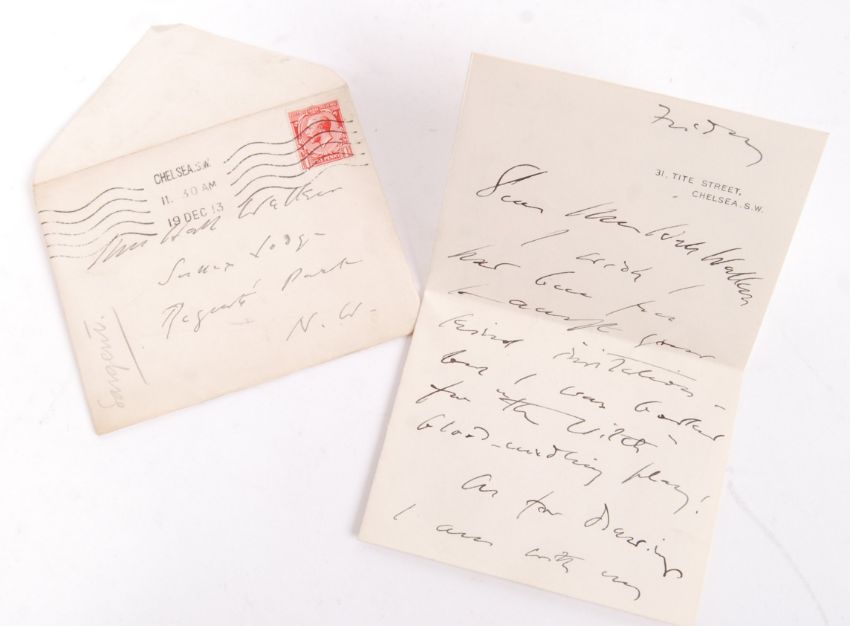 CHELSEA. S.W.
11. 30 AM
19 DEC 13
Hall Walker
Sussex Lodge
Regent's Park
N. W.
Sargent.
Friday
31, TITE STREET,
CHELSEA. S.W.
Dear Mrs Hall Walker
I wish I
had been free
to accept your
kind invitation -
but I was booked
for
blood-curdling play!
As for drawings
I am with my